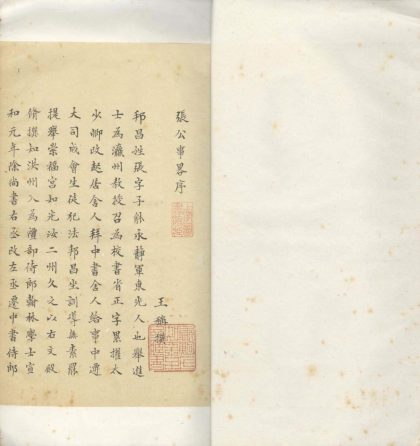 張公事畧序
王稱撰
邦昌姓張字子能永靜軍東光人也舉進
士為瀛州教授召為校書省正字累擢太
少卿改起居舍人拜中書舍人給事中遷
大司成會生徒犯法邦昌坐訓導無素罷
提舉崇福宮知光汝二州久之以右文殿
脩撰知洪州入為禮部侍郎翰林學士宣
和元年除尚書右丞改左丞遷中書侍郎